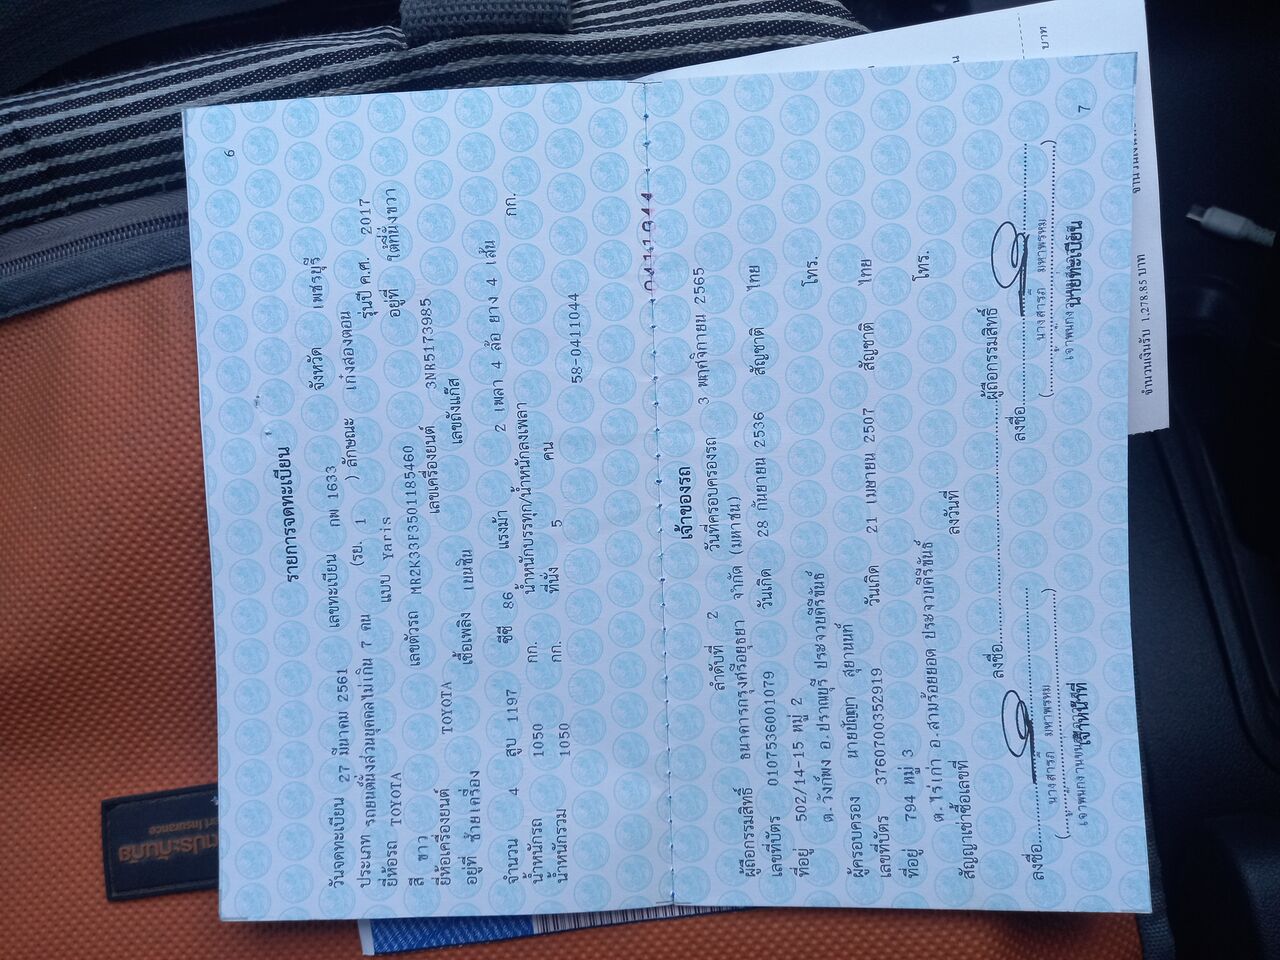 6
รายการจดทะเบียน
วันจดทะเบียน 27 มีนาคม 2561 เลขทะเบียน กพ 1633 จังหวัด เพชรบุรี
ประเภท รถยนต์นั่งส่วนบุคคลไม่เกิน 7 คน (รย. 1 ) ลักษณะ เก๋งสองตอน
ยี่ห้อรถ TOYOTA แบบ Yaris รุ่นปี ค.ศ. 2017
สี ขาว เลขตัวรถ MR2K33F3501185460 อยู่ที่ ใต้ที่นั่งขวา
ยี่ห้อเครื่องยนต์ TOYOTA เลขเครื่องยนต์ 3NR5173985
อยู่ที่ ซ้ายเครื่อง เชื้อเพลิง เบนซิน เลขถังแก๊ส
จำนวน 4 สูบ 1197 ซีซี 86 แรงม้า 2 เพลา 4 ล้อ ยาง 4 เส้น
น้ำหนักรถ 1050 กก. น้ำหนักบรรทุก/น้ำหนักลงเพลา กก.
น้ำหนักรวม 1050 กก. ที่นั่ง 5 คน
58-0411044
0411044
เจ้าของรถ
ลำดับที่ 2 วันที่ครอบครองรถ 3 พฤศจิกายน 2565
ผู้ถือกรรมสิทธิ์ ธนาคารกรุงศรีอยุธยา จำกัด (มหาชน)
เลขที่บัตร 0107536001079 วันเกิด 28 กันยายน 2536 สัญชาติ ไทย
ที่อยู่ 502/14-15 หมู่ 2
ต.วังก์พง อ.ปราณบุรี ประจวบคีรีขันธ์ โทร.
ผู้ครอบครอง นายบัญญา สุยานนท์
เลขที่บัตร 3760700352919 วันเกิด 21 เมษายน 2507 สัญชาติ ไทย
ที่อยู่ 794 หมู่ 3
ต.ไร่เก่า อ.สามร้อยยอด ประจวบคีรีขันธ์ โทร.
สัญญาเช่าซื้อเลขที่ ลงวันที่
ลงชื่อ ผู้ถือกรรมสิทธิ์
ลงชื่อ ลงชื่อ
นางสารภี มหาพรหม นางสารภี มหาพรหม
เจ้าหน้าที่ นายทะเบียน
7
บาท
จำนวนเงินรับ 1,278.85 บาท